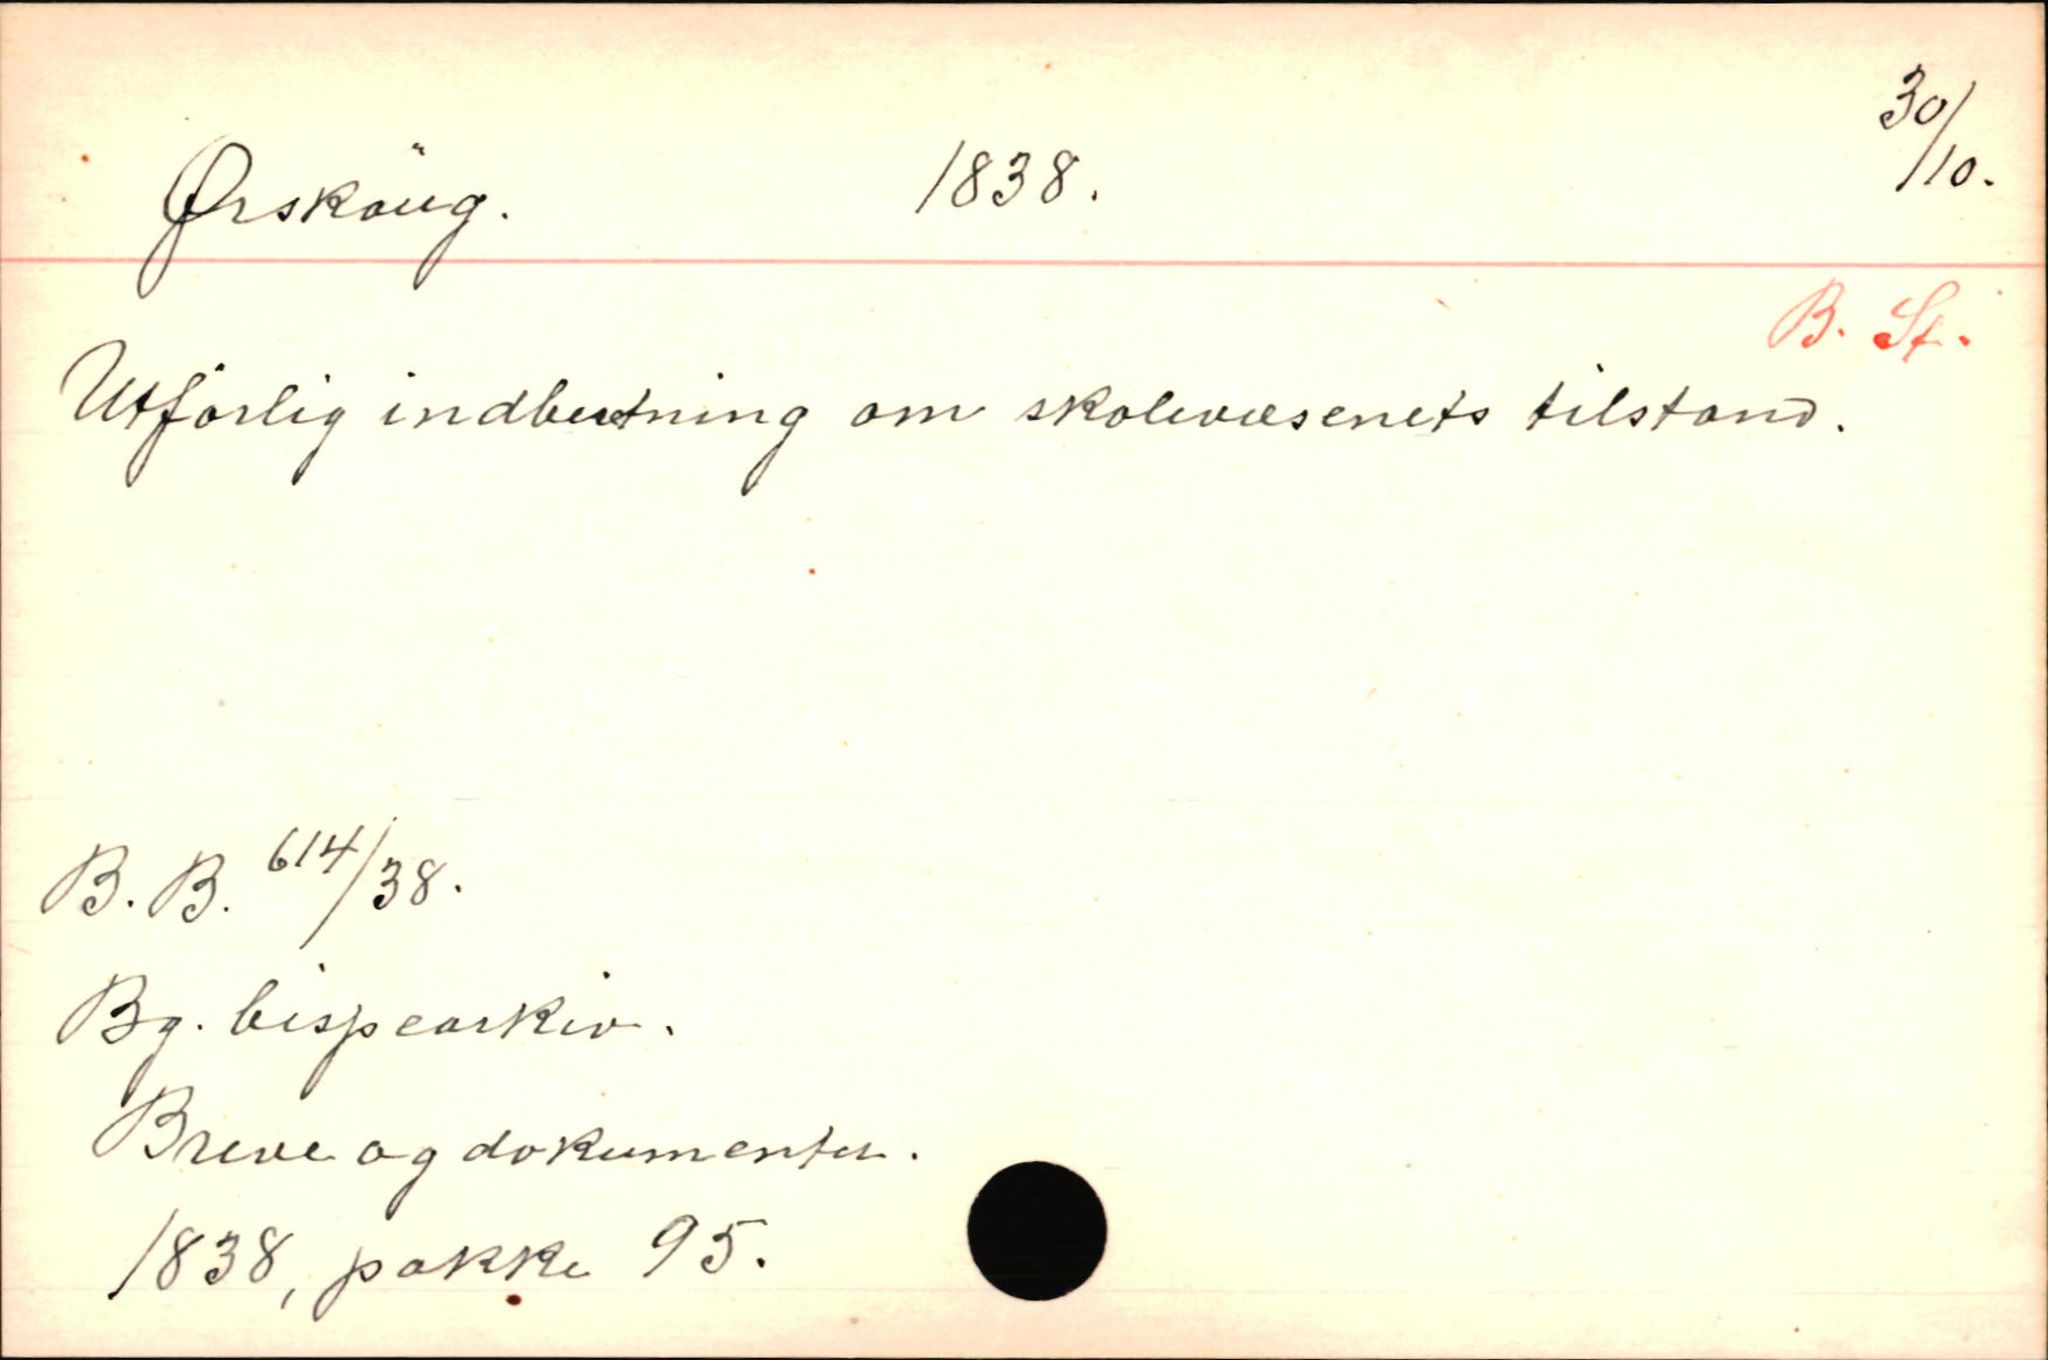 Ørskoug. 1838. 30/10.
B. St.
Utförlig indberetning om skolevæsenets tilstand.
B. B. 614/38.
Bg. bispearkiv.
Breve og dokumenter.
1838, pakke 95.